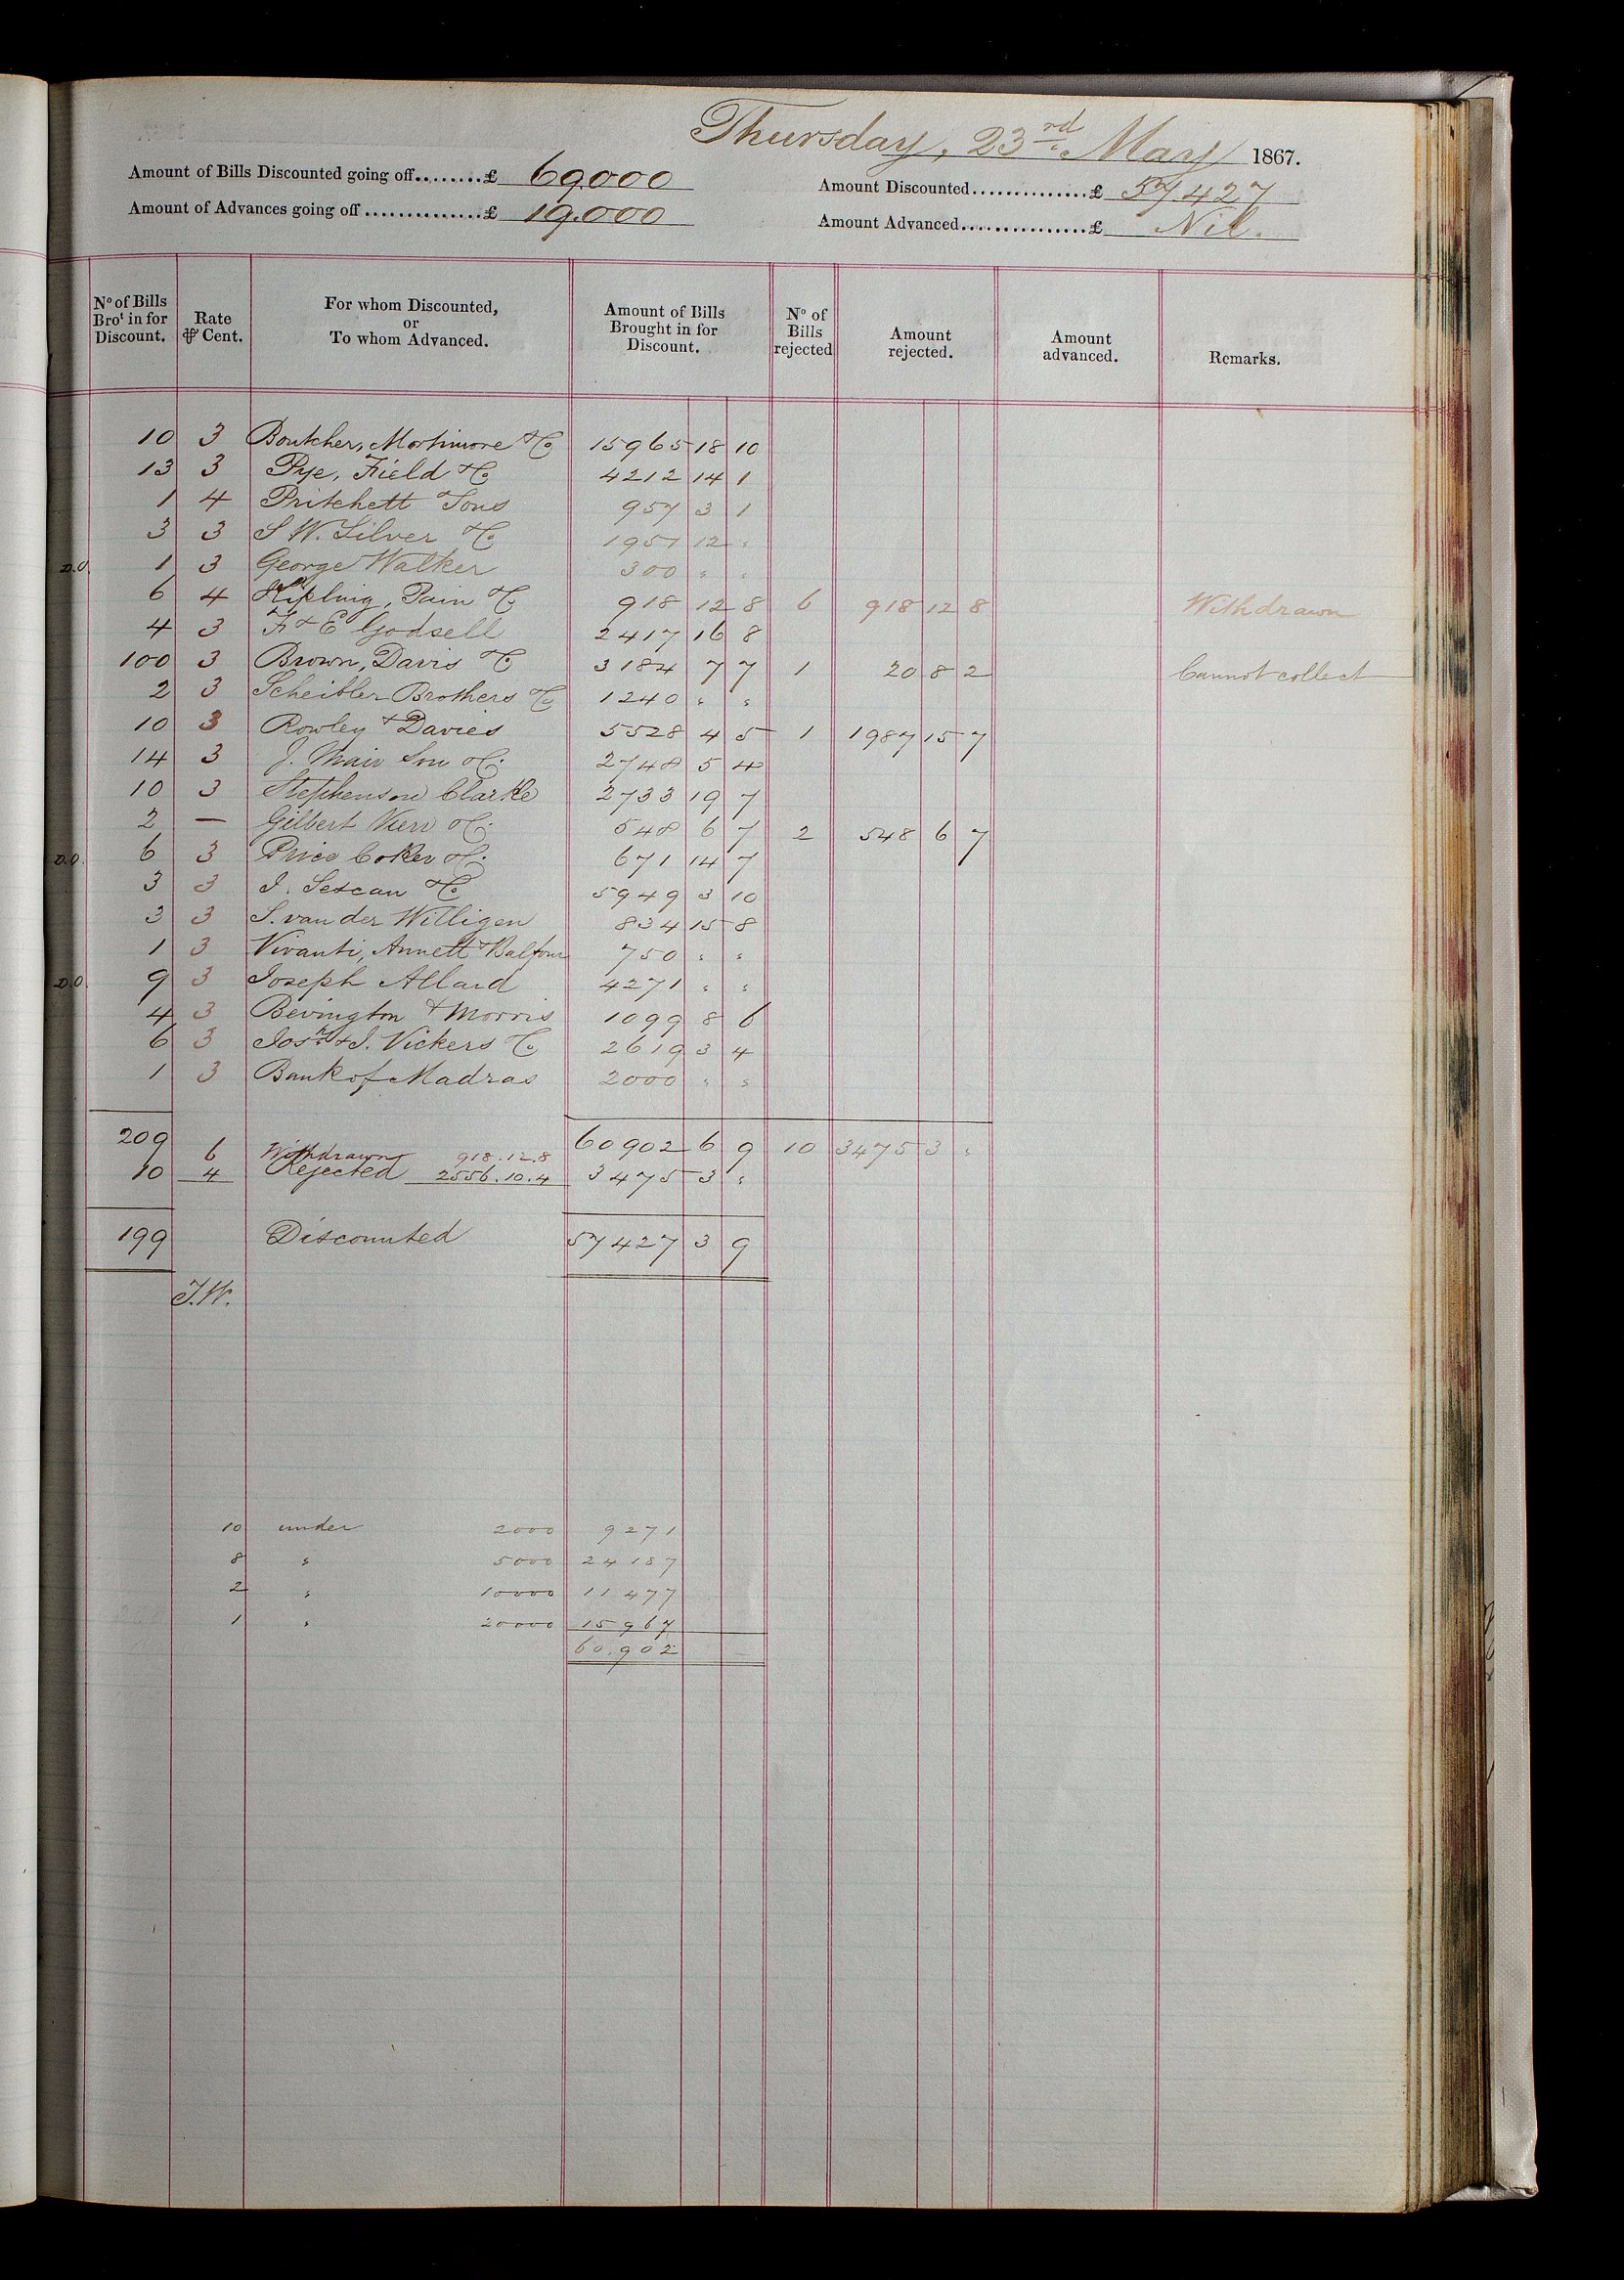 Thursday, 23rd May 1867.
Amount of Bills Discounted going off........£ 69,000
Amount Discounted..............£ 57.427
Amount of Advances going off...............£ 19.000
Amount Advanced................£ Nil.
No of Bills Brot in for Discount. Rate ⅌ Cent. For whom Discounted, or To whom Advanced. Amount of Bills Brought in for Discount. No of Bills rejected Amount rejected. Amount advanced. Remarks.
10 3 Boutcher, Mortimore & Co 15965 18 10
13 3 Pye, Field & Co 4212 14 1
1 4 Pritchett & Sons 957 3 1
3 3 S W. Silver & Co 1951 12 "
D.O. 1 3 George Walker 300 " "
6 4 Kipling, Pain & Co 918 12 8 6 918 12 8 Withdrawn
4 3 F & E Godsell 2417 16 8
100 3 Brown, Davis & Co 3184 7 7 1 20 8 2 Cannot collect
2 3 Scheibler Brothers & Co 1240 " "
10 3 Rowley & Davies 5528 4 5 1 1987 15 7
14 3 J. Mair Son & Co. 2748 5 4
10 3 Stephenson Clarke 2733 19 7
2 — Gilbert & Co. 548 6 7 2 548 6 7
D.O. 6 3 Price Coker & Co. 671 14 7
3 3 I. Sescau & Co 5949 3 10
3 3 S. van der Willigen 834 15 8
1 3 Vivanti, Annett & Balfour 750 " "
D.O. 9 3 Joseph Allard 4271 " "
4 3 Bevington & Morris 1099 8 6
6 3 Josh & I. Vickers & Co 2619 3 4
1 3 Bank of Madras 2000 " "
209 60902 6 9 10 3475 3 "
6 Withdrawn 918.12.8
10 4 Rejected 2556.10.4 3475 3 "
199 Discounted 57427 3 9
J.W.
10 under 2000 9271
8 " 5000 24187
2 " 10000 11477
1 " 20000 15967
60.902